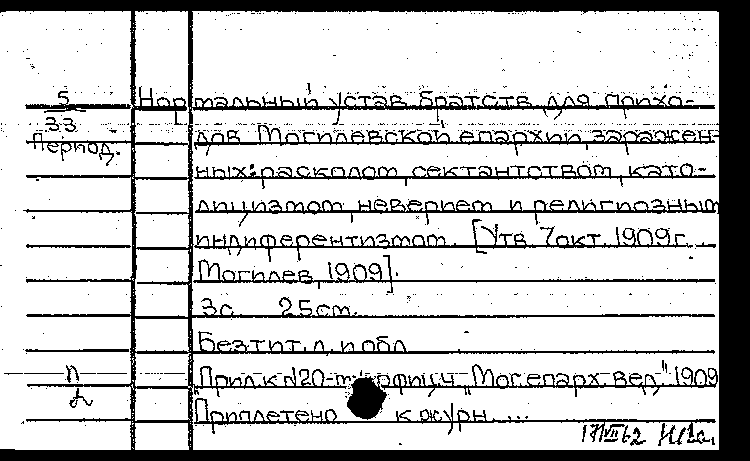 5
33
Период.
Нормальный устав братств для прихо-
дов Могилевской епархии, заражен-
ных: расколом, сектантством, като-
лицизмом, неверием и религиозным
индиферентизмом. [Утв. 7 окт. 1909 г.
Могилев, 1909].
3 с. 25 см.
Без тит. л. и обл.
Прил. к №20-му офиц. ч. "Мог. епарх. вед." 1909
Приплетено к журн. ...
17/VII 62